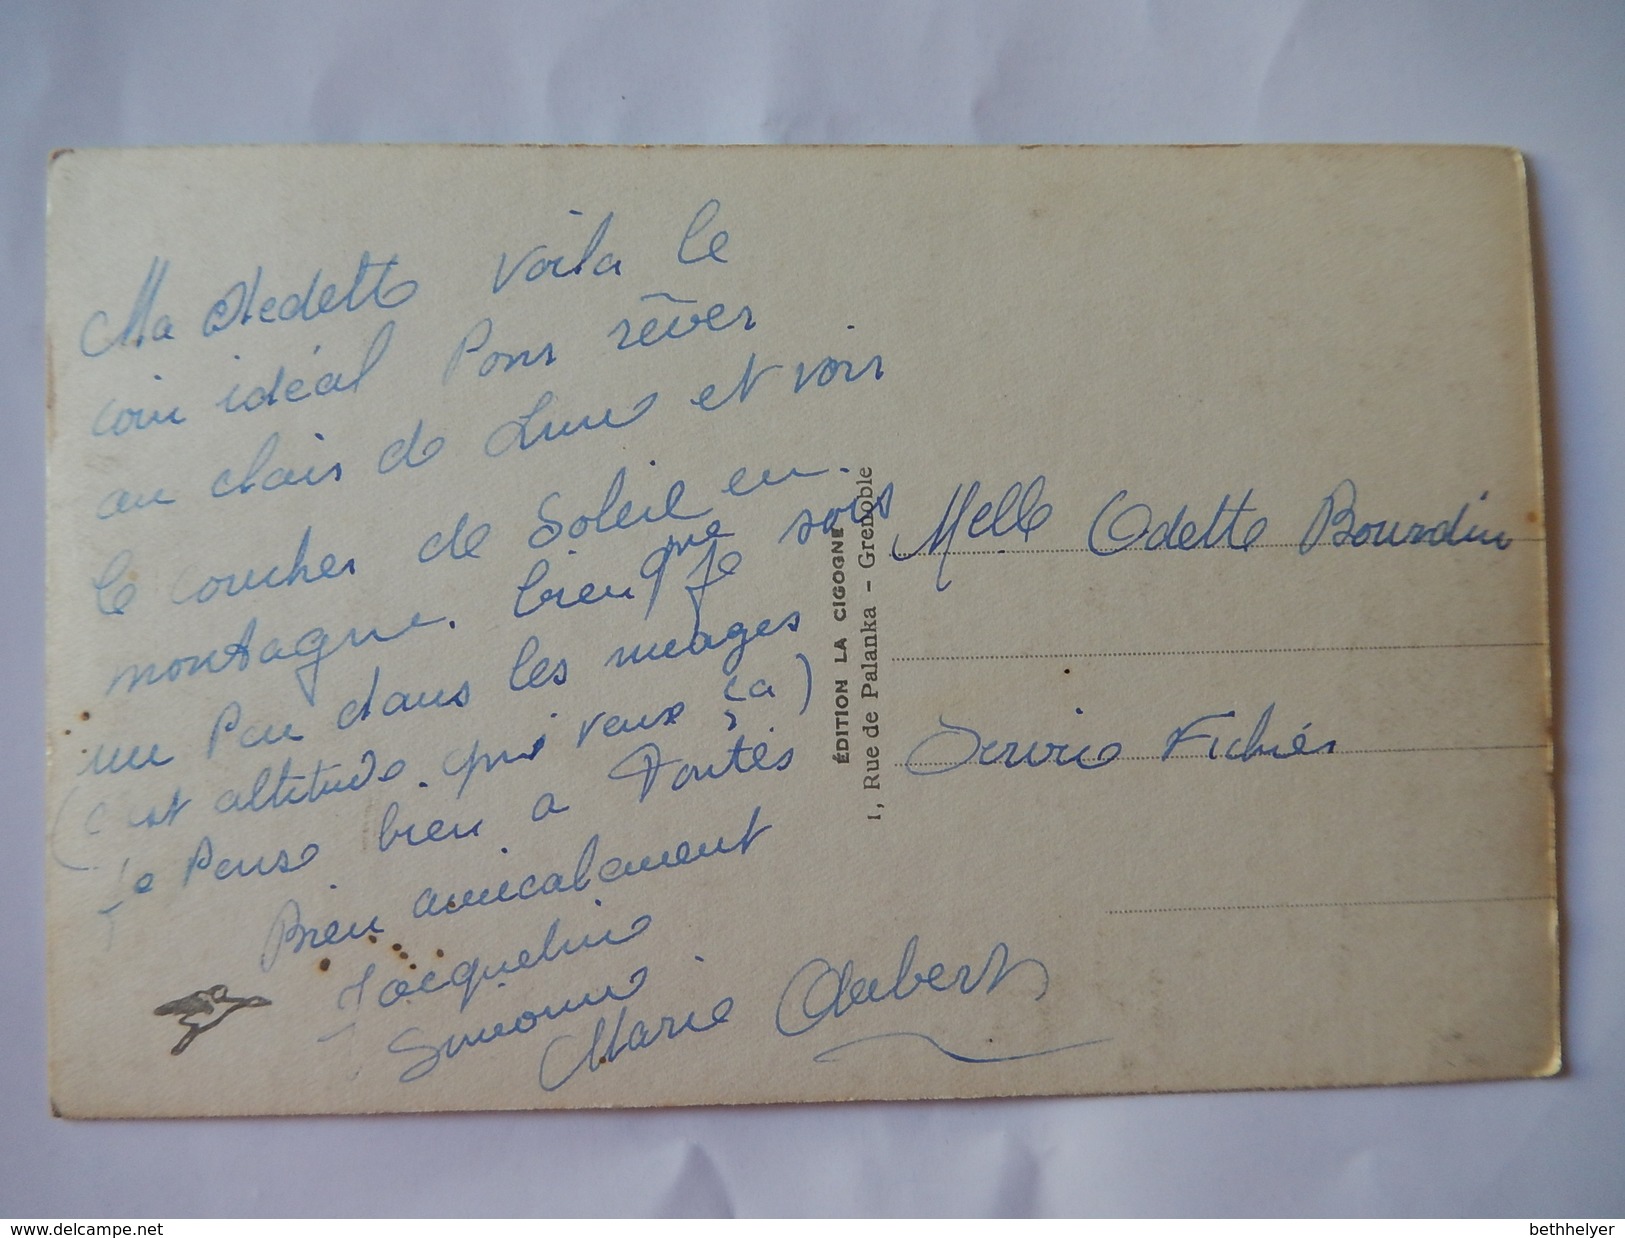 Ma Vedette voila le
coin idéal Pour rêver
au clair de Lune et voir
le coucher de Soleil en
montagne. bien que je sois
un Peu dans les nuages
(c'est altitude qui veux ça)
Je Pense bien a Toutes
Bien amicalement
Jacqueline
Simone
Marie Aubert
ÉDITION LA CIGOGNE
1, Rue de Palanka - Grenoble
Melle Odette Bourdin
Service Fichier
www.delcampe.net
bethhelyer